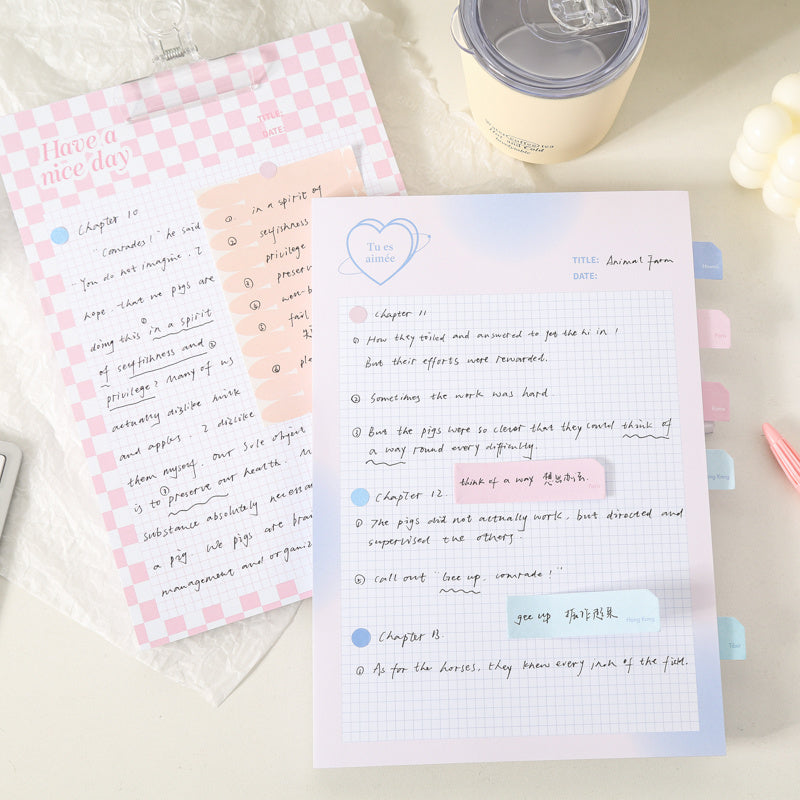 Have a
nice day
TITLE:
DATE:
Chapter 10
"Comrades!" he said
"You do not imagine. I
hope. that we pigs are
doing this in a spirit
of selfishness and
privilege? Many of us
actually dislike milk
and apples. I dislike
them myself. our sole object
is to preserve our health. M
substance absolutely necessar
a pig. We pigs are brai
management and organiz
① in a spirit of
② selfishness
privilege
③ preserv
④ well-b
⑤ fail
⑥ ple
Tu es
aimée
TITLE: Animal Farm
DATE:
Chapter 11
① How they toiled and answered to get the hi in!
But their efforts were rewarded.
② Sometimes the work was hard.
③ But the pigs were so clever that they could think of
a way round every difficulty.
think of a way 想出办法.
Chapter 12.
① The pigs did not actually work. but directed and
supervised the others.
② call out "Gee up, comrade!"
gee up 振作起来
Hong Kong
Chapter 13.
① As for the horses, they knew every inch of the field.
Hawaii
Paris
Rome
Hong Kong
Tibet